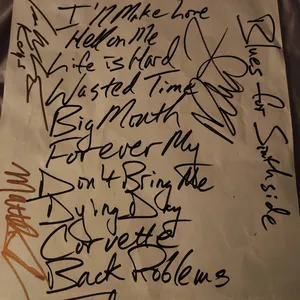 I'll Make Love
Hell on Me
Life is Hard
Wasted Time
Big Mouth
Forever My
Don't Bring Me
Dying Day
Corvette
Back Problems
Blues for Southside
Keys